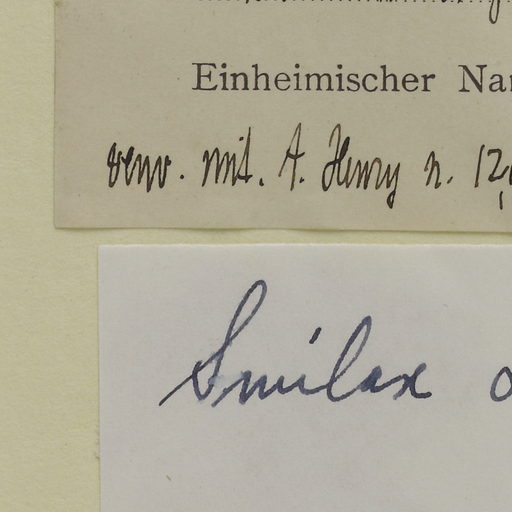 Einheimischer Na
verw. mit. A. Henry n. 12
Smilax